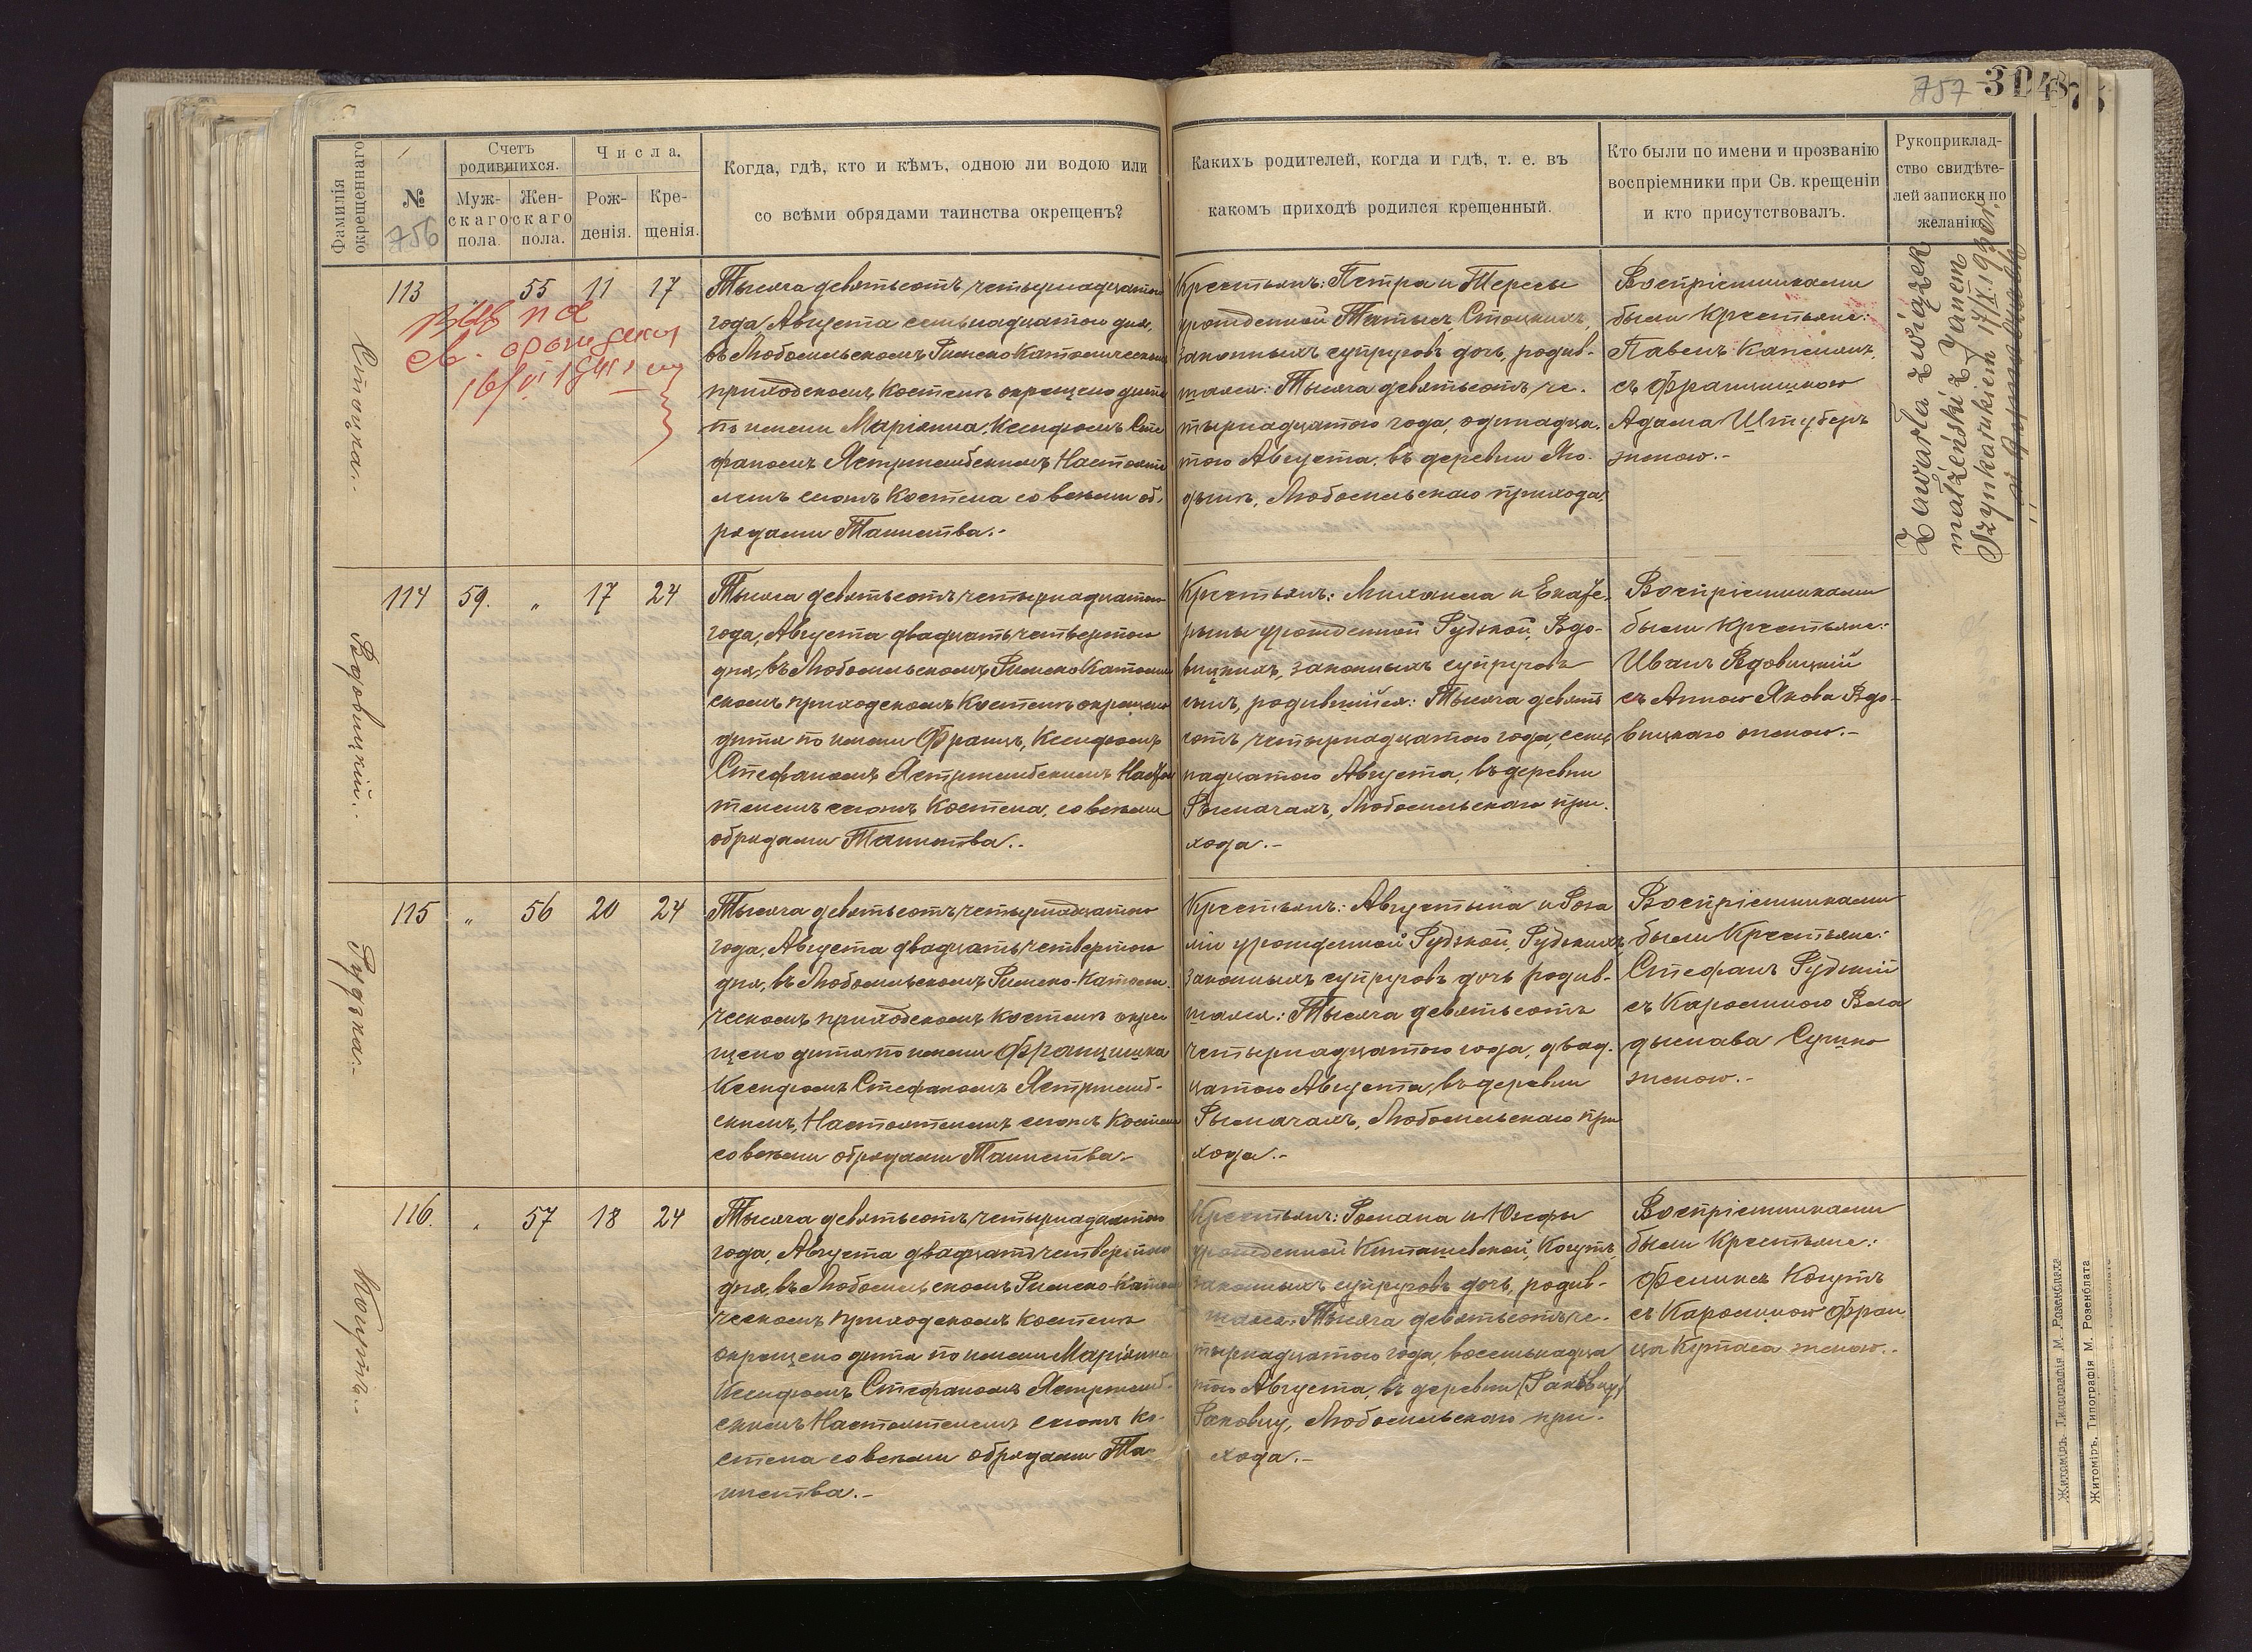 757 31 48
Фамилія окрещеннаго
№
756
Счетъ родившихся.
Муж-скаго пола.
Жен-скаго пола.
Числа.
Рож-денія.
Кре-щенія.
Когда, гдѣ, кто и кѣмъ, одною ли водою или
со всѣми обрядами таинства окрещенъ?
Какихъ родителей, когда и гдѣ, т. е. въ
какомъ приходѣ родился крещенный.
Кто были по имени и прозванію
воспріемники при Св. крещеніи
и кто присутствовалъ.
Рукоприклад-
ство свидѣте-
лей записки по
желанію.
Стоцкая.-
113 „ 55 11 17
Тысяча девятьсотъ четырнадцатаго
года, Августа семьнадцатого дня,
въ Любомльскомъ Римско Католическомъ
приходскомъ Костелѣ окрещено дитя
по имени Маріанна, Ксендзомъ Сте
фаномъ Ястржембскимъ Настояте
лемъ сионъ Костела со всѣми об-
рядами Таинства.-
Крестьянъ: Петра и Тересы
урожденной Татысъ, Стоцкихъ,
законныхъ супруговъ дочь, родив-
шаяся: Тысяча девятьсотъ че-
тырнадцатого года, одинадца-
того Августа, въ деревни
Любомльскаго прихода.
Воспріемниками
были Крестьяне:
Павелъ
съ Францишкою
Адама Штуберъ
женою.-
Zawarła związek
małżeński z Janem
Szynkarukiem
Вдовицкій.-
114 59. „ 17 24
Тысяча девятьсотъ четырнадцатаго
года, Августа двадцать четвертого
дня, въ Любомльскомъ Римско Католиче
скомъ приходскомъ Костелѣ окрещено
дитя по имени Францъ, Ксендзомъ
Стефаномъ Ястржембскимъ Настоя
телемъ сионъ Костела, со всѣми
обрядами Таинства.-
Крестьянъ: Михаила и Екате-
рины урожденной Рудзкой, Вдо-
вицкихъ, законныхъ супруговъ
сынъ, родившійся: Тысяча девять
сотъ четырнадцатого года, семь
надцатого Августа, въ деревни
Рымачахъ, Любомльскаго при-
хода.-
Воспріемниками
были Крестьяне:
Иванъ Вдовицкій
съ Анною Якова Вдо-
вицкаго женою.-
Рудзкая.-
115 „ 56 20 24
Тысяча девятьсотъ четырнадцатого
года, Августа двадцать четвертого
дня, въ Любомльскомъ Римско-Католи-
ческомъ приходскомъ Костелѣ окре
щено дитя по имени Францишка
Ксендзомъ Стефаномъ Ястржемб-
скимъ, Настоятелемъ сионъ Костела
со всѣми обрядами Таинства.-
Крестьянъ: Августына и Роза
ліи урожденной Рудзкой, Рудзкихъ
законныхъ супруговъ дочь родив-
шаяся: Тысяча девятьсотъ
четырнадцатого года, двад-
цатого Августа, въ деревни
Рымачахъ, Любомльскаго при
хода.-
Воспріемниками
были Крестьяне:
Стефанъ Рудзкій
съ Каролиною Вла
дыслава Сушко
женою.-
Когутъ.-
116. „ 57 18 24
Тысяча девятьсотъ четырнадцатого
года, Августа двадцать четвертого
дня, въ Любомльскомъ Римско-Католи
ческомъ приходскомъ Костелѣ
окрещено дитя по имени Маріанна
Ксендзомъ Стефаномъ Ястржемб-
скимъ Настоятелемъ сионъ Ко-
стела со всѣми обрядами Та-
инства.-
Крестьянъ: Романа и Юзефы
урожденной Киташевской, Когутъ,
законныхъ супруговъ дочь, родив-
шаяся: Тысяча девятьсотъ че-
тырнадцатого года, восемьнадца
того Августа, въ деревни (Раковцу)
Раковцу, Любомльскаго при-
хода.-
Воспріемниками
были Крестьяне:
Феликсъ Когутъ
съ Каролиною Фран
ца Кутаса женою.-
Житоміръ. Типографія М. Розенблата
Житоміръ, Типографія М. Розенблата